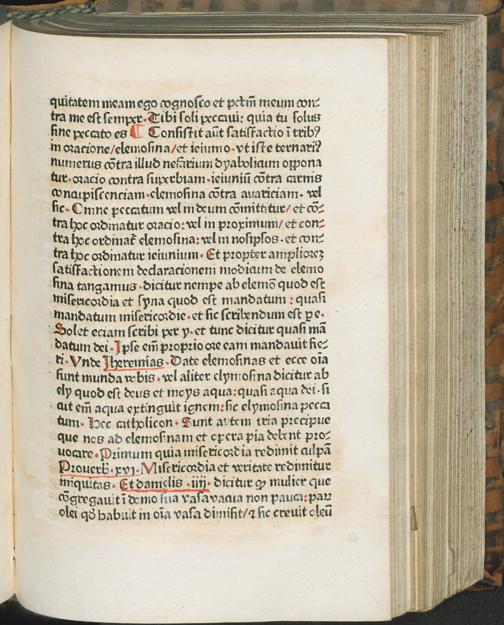 quitatem meam ego cognosco et pctm̄ meum con⸗
tra me est semper. Tibi soli peccaui: quia tu solus
sine peccato es ¶ Consistit aūt satisfactio ī tribꝰ
in oracione/elemosina/et ieiunio. vt iste ternariꝰ
numerus cōtra illud nefarium dyabolicum oppona
tur. oracio contra superbiam. ieiuniū cōtra carnis
concupiscenciam. elemosina cōtra auariciam. vel
sic. Omne peccatum vel in deum cōmittitur/ et cō⸗
tra hoc ordinatur oracio: vel in proximum/ et con⸗
tra hoc ordinat᷑ elemosina: vel in nosipsos. et con⸗
tra hoc ordinatur ieiunium. Et propter ampliorē
satisfactionem declaracionem modicum de elemo
sina tangamus. dicitur nempe ab elemon̄ quod est
misericordia et syna quod est mandatum: quasi
mandatum misericordie. et sic scribendum est per e.
Solet eciam scribi per y. et tunc dicitur quasi mā
datum dei. Ipse em̄ proprio ore eam mandauit fie⸗
ri. Vnde Jheremias. Date elemosinas et ecce oīa
sunt munda vobis. vel aliter elymosina dicitur ab
ely quod est deus et moys aqua: quasi aqua dei. si
cut em̄ aqua extinguit ignem: sic elymosina pecca
tum. Hec catholicon. Sunt autem tria precipue
que nos ad elemosinam et opera pia debent pro⸗
uocare. Primum quia misericordia redimit culpā
Prouerb̄. xvj. Misericordia et veritate redimitur
iniquitas. Et danielis. iiij. dicitur ꝙ mulier que
cōgregauit ī domo sua vasa vacua non pauca: par
olei qd̄ habuit in oīa vasa dimisit/ ⁊ sic creuit oleū